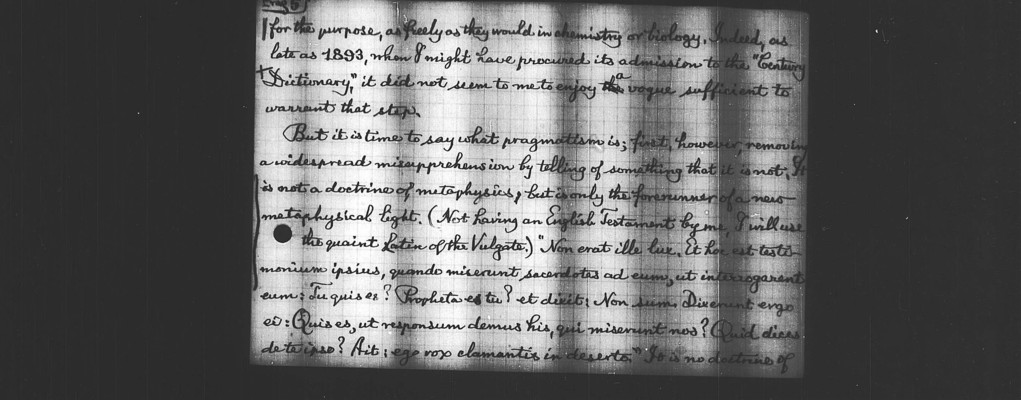 for the purpose, as freely as they would in chemistry or biology. Indeed, as
late as 1893, when I might have procured its admission to the "Century
Dictionary," it did not seem to me to enjoy the a vogue sufficient to
warrant that step.
But it is time to say what pragmatism is; first, however, removing
a widespread misapprehension by telling of something that it is not. It
is not a doctrine of metaphysics, but is only the forerunner of a new
metaphysical light. (Not having an English Testament by me, I will use
the quaint Latin of the Vulgate.) "Non erat ille lux. Et hoc est testi-
monium ipsius, quando miserunt sacerdotes ad eum, ut interrogarent
eum: Tu quis es? Propheta es tu? et dixit: Non sum. Dixerunt ergo
ei: Quis es, ut responsum demus his, qui miserunt nos? Quid dices
de te ipso? Ait: ego vox clamantis in deserto." It is no doctrine of